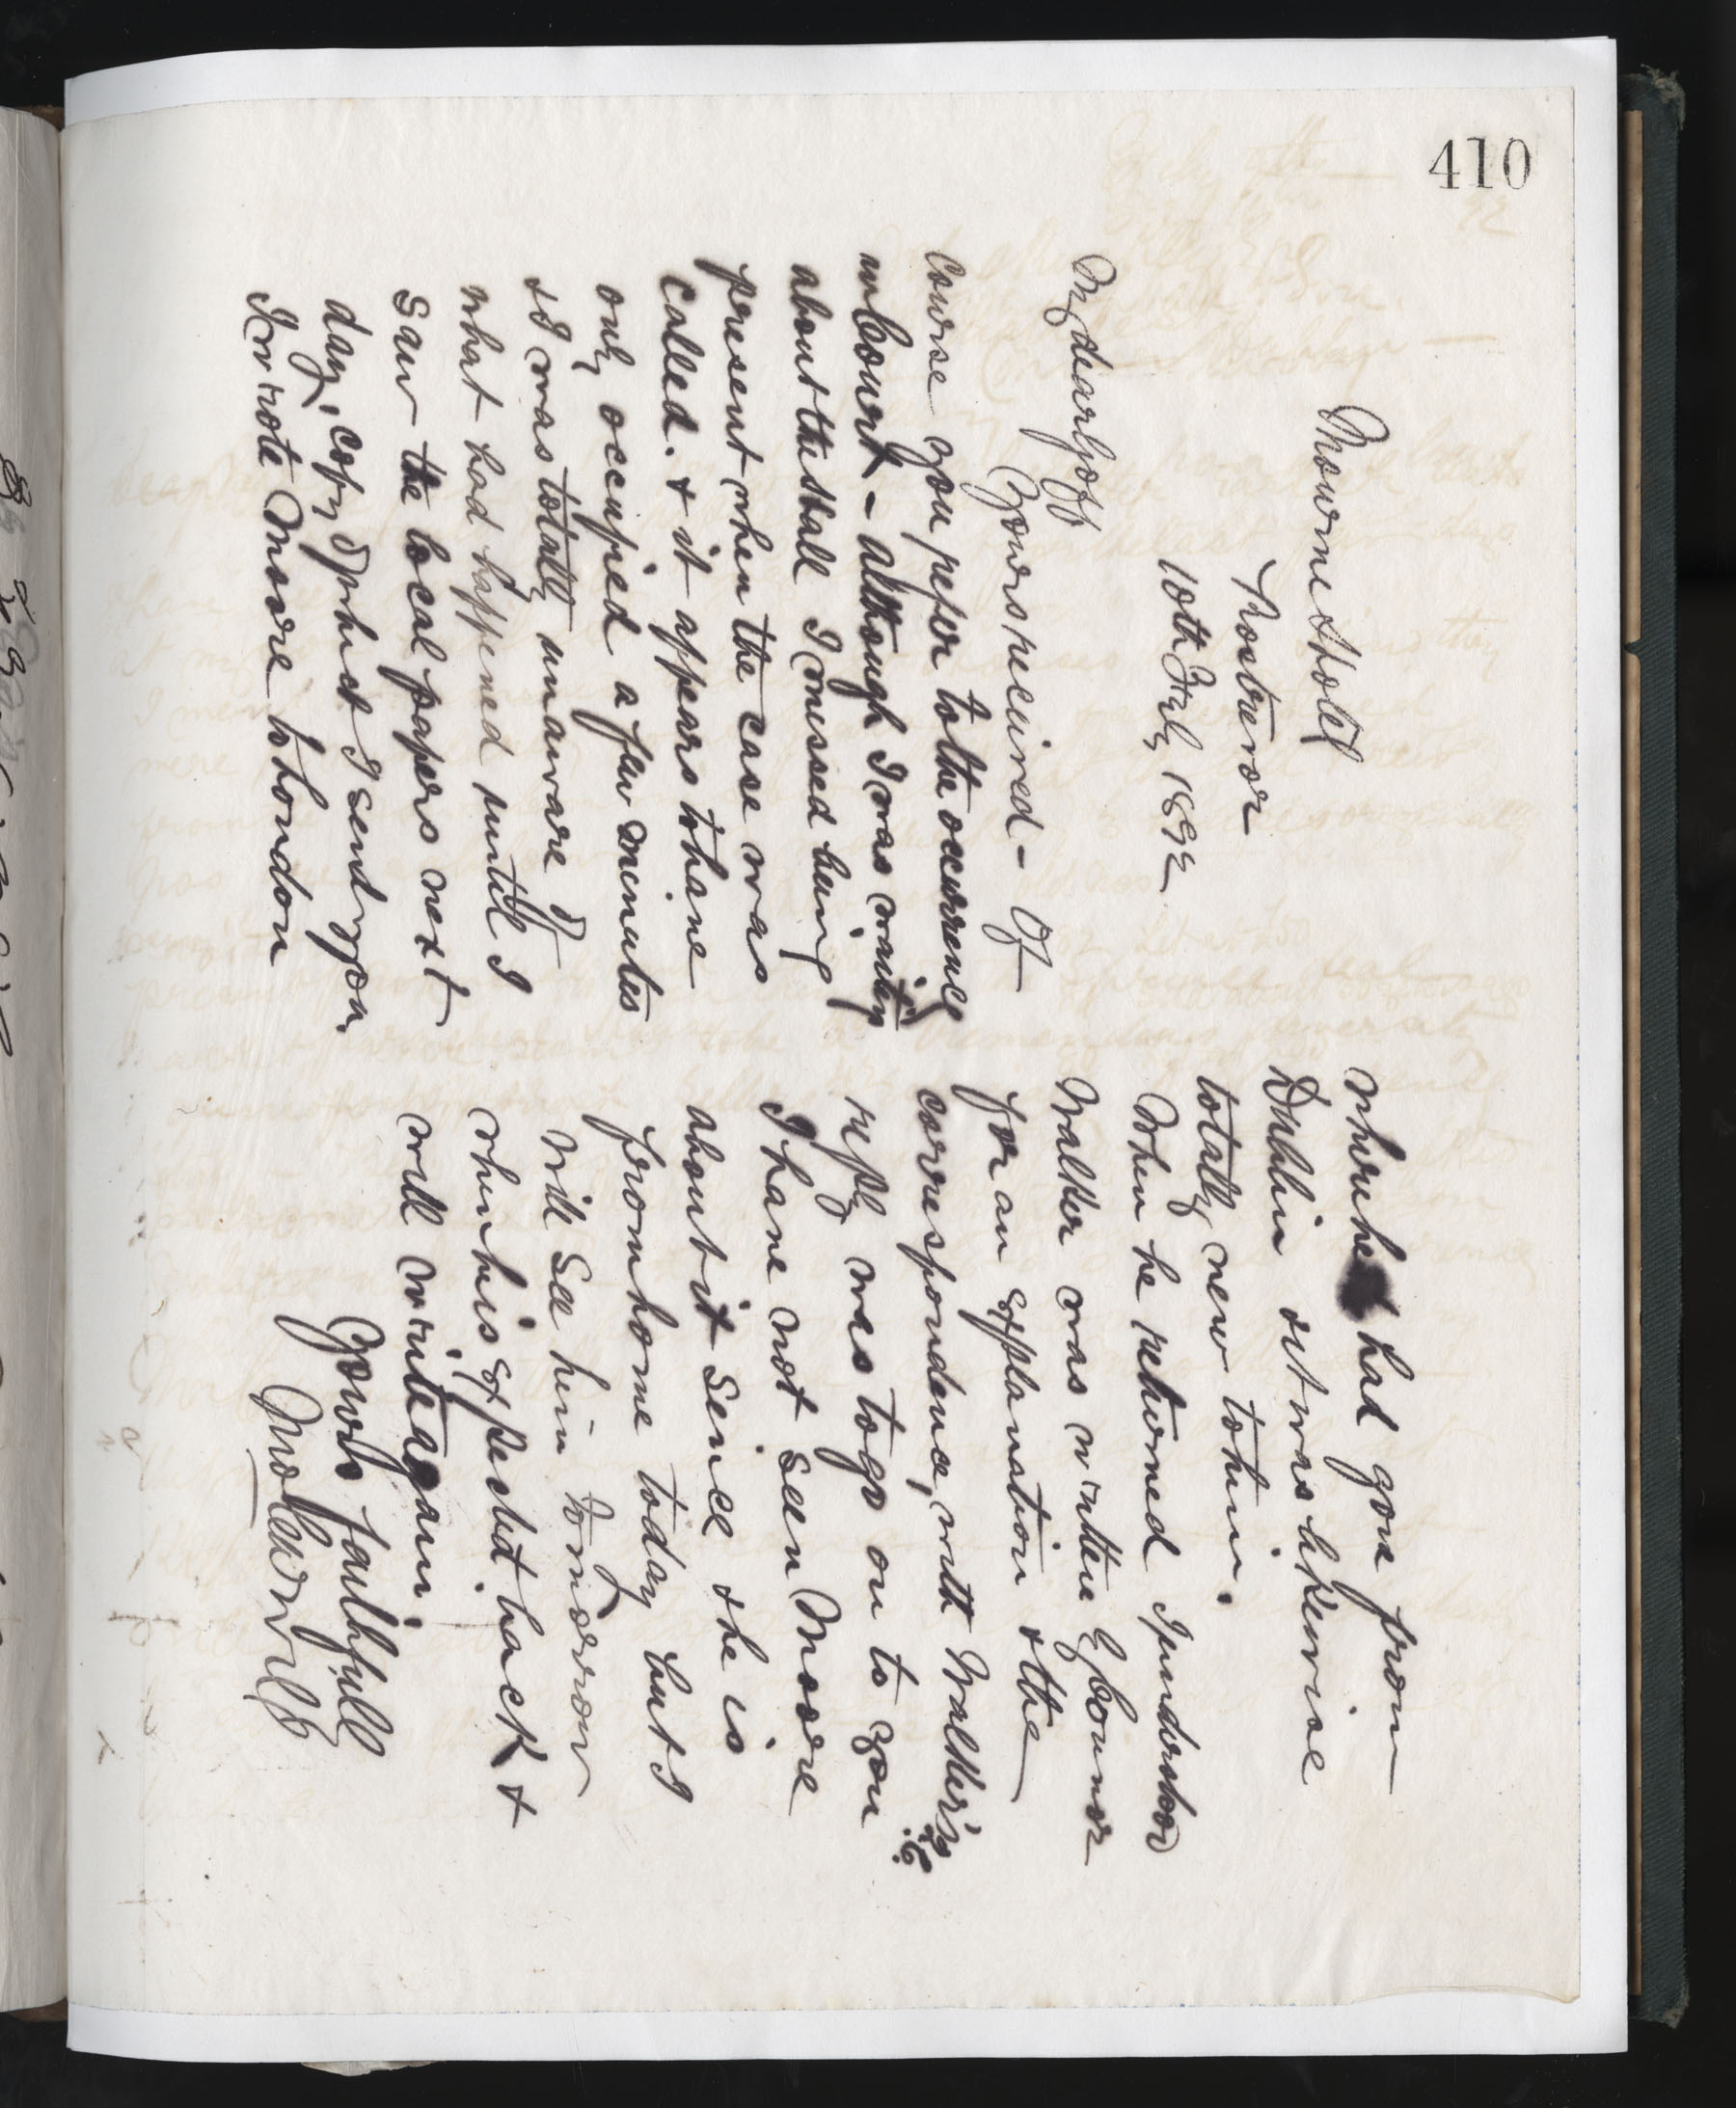 410
Mourne Hotel
Rostrevor
10th Feb, 1892
My dear Goff
Yours received - Of
course you refer to the occurrence
in Court - although I was waiting
about the stall I missed being
present when the case was
called. & it appears to have
only occupied a few minutes
& I was totally unaware of
what had happened until I
saw the local papers next
day, copy of which I send you,
I wrote Moore to London
where he had gone from
Dublin & it was likewise
totally new to him.
When he returned I understood
Walker was written
for an explanation & the
correspondence, with Walker's
reply was to go on to you
I have not seen Moore
about it since & he is
from home today but I
will see him tomorrow
when he is expected back &
will write again.
Yours faithfull